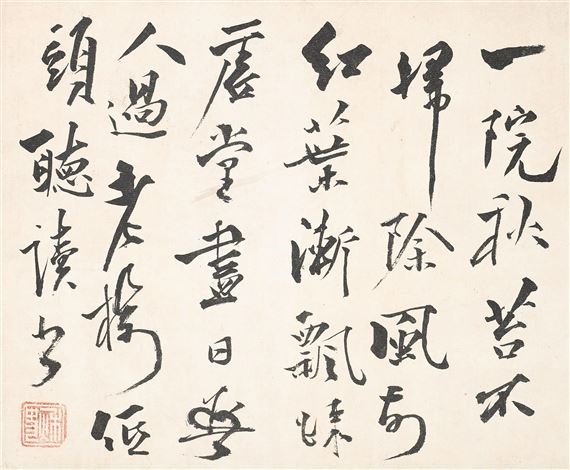 一院秋苔不
掃除風前
紅葉漸飄疎
虛堂盡日無
人過老樹低
頭聽讀書